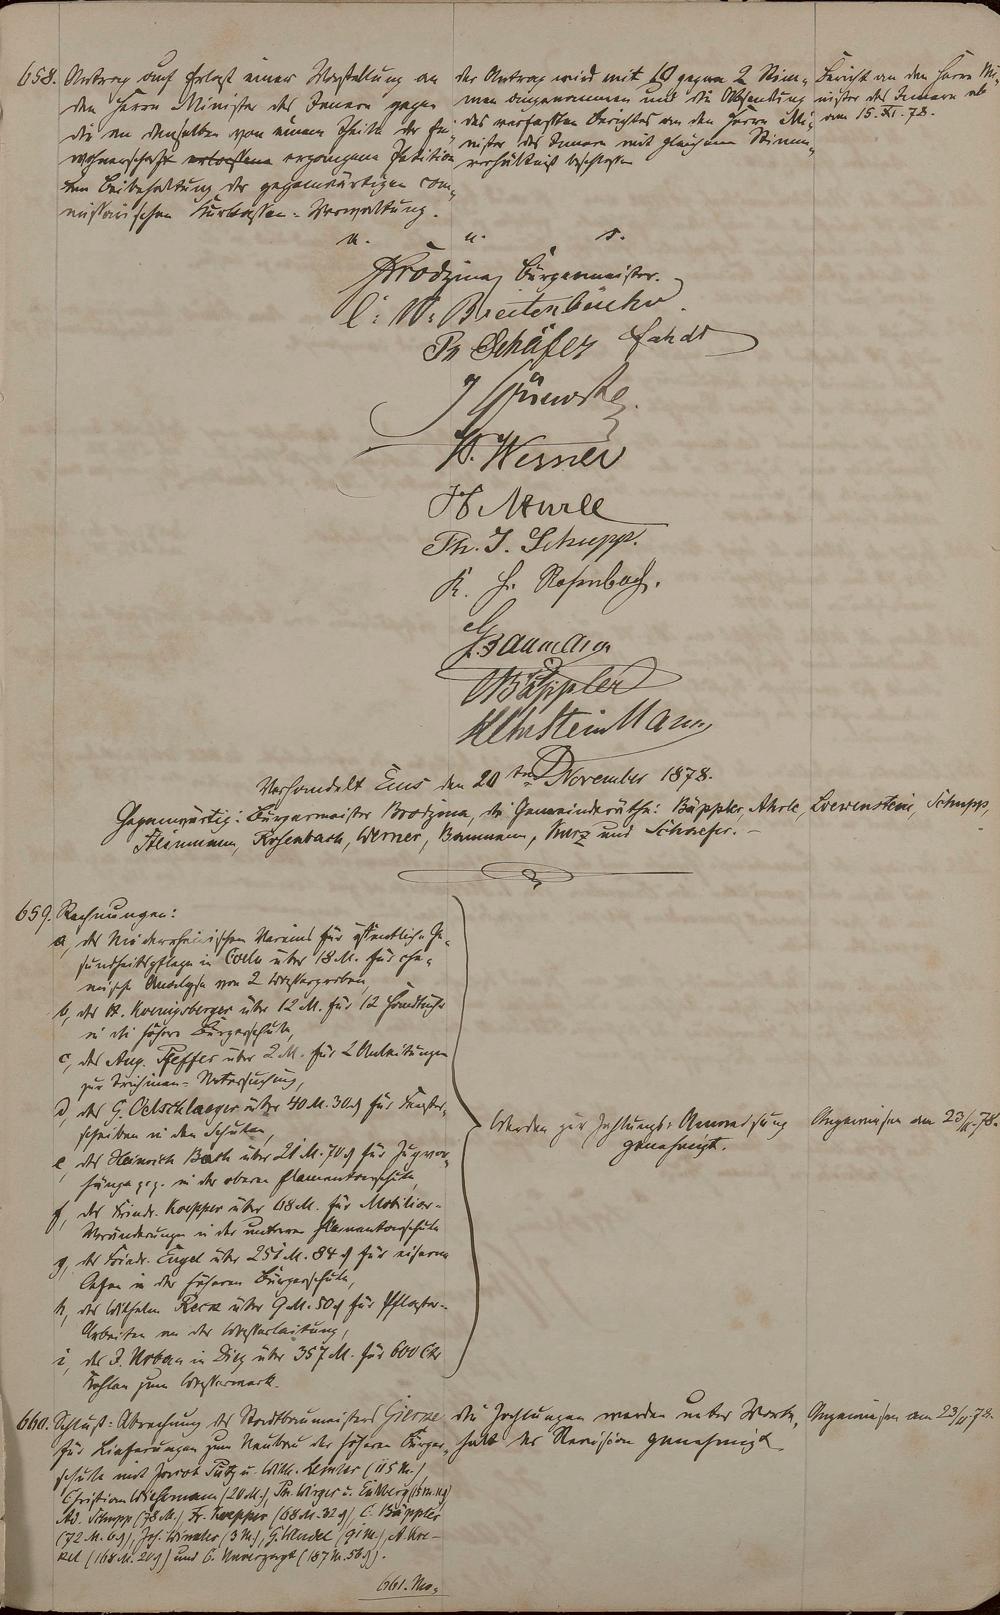 658. Antrag auf Erlaß einer Vorstellung an
den Herrn Minister des Innern gegen
die an denselben von einem Theile der Ein-
wohnerschaft erlassene ergangene Petition
um Beibehaltung der gegenwärtigen com-
missarischen Kurkassen-Verwaltung.
der Antrag wird mit 10 gegen 2 Stim-
men angenommen und die Absendung
des verfaßten Berichtes an den Herrn Mi-
nister des Innern mit gleichem Stimm-
verhältniß beschlossen
Bericht an den Herrn Mi-
nister des Innern ab
am 15. XI. 78.
u. u. s.
Brodzina, Bürgermeister.
C. W. Breitenbücher.
Ph Schäfer
W. Werner
H. Ahrle
Th. J. Schupp.
K. H. Rosenbach.
Baumann
Bäppler
Steinmann
Verhandelt Ems den 20ten November 1878.
Gegenwärtig: Bürgermeister Brodzina, die Gemeinderäthe: Bäppler, Ahrle, Loewenstein, Schupp,
Steinmann, Rosenbach, Werner, Baumann, Kurz und Schaefer. –
659. Rechnungen:
a, des Niederrheinischen Vereins für öffentliche Ge-
sundheitspflege in Coeln über 18 M. für che-
mische Analyse von 2 Wasserproben,
b, des A. Koenigsberger über 12 M. für 12 Handtücher
in die höhere Bürgerschule,
c, des Aug. Pfeffer über 2 M. für 2 Anleitungen
zur Trichinen-Untersuchung,
d, des G. Oelschlaeger über 40 M. 30 ₰ für Fenster-
scheiben in den Schulen,
e, des Heinrich Bach über 21 M. 70 ₰ für Zugvor-
hänge pp. in der oberen Elementarschule,
f, des Friedr. Koepper über 68 M. für Mobiliar-
Veränderungen in der unteren Elementarschule
g, des Friedr. Engel über 251 M. 84 ₰ für eiserne
Oefen in der höheren Bürgerschule,
h, des Wilhelm Reck über 9 M. 50 ₰ für Pflaster-
Arbeiten an der Wasserleitung,
i, des J. Urban in Diez über 357 M. für 600 Ctr
Kohlen zum Wasserwerk.
Werden zur Zahlungs-Anweisung
genehmigt.
Angewiesen am 23/11.78.
660. Schluß-Abrechnung des Stadtbaumeisters
für Lieferungen zum Neubau der höheren Bürger-
schule mit Jacob Putz u. Wilh. Lemler (115 M.),
Christian Wiesemann (20 M.), Ph. Wirges u.
Ad. Schupp (78 M.), Fr. Koepper (68 M. 32 ₰), C. Bäppler
(72 M. 6 ₰), Joh. Winkler (3 M.), G. Wendel (91 M.), A.
(168 M. 20 ₰) und C. Unverzagt (187 M. 56 ₰).
die Zahlungen werden unter Vorbe-
halt der Revision genehmigt
Angewiesen am 23/11 78.